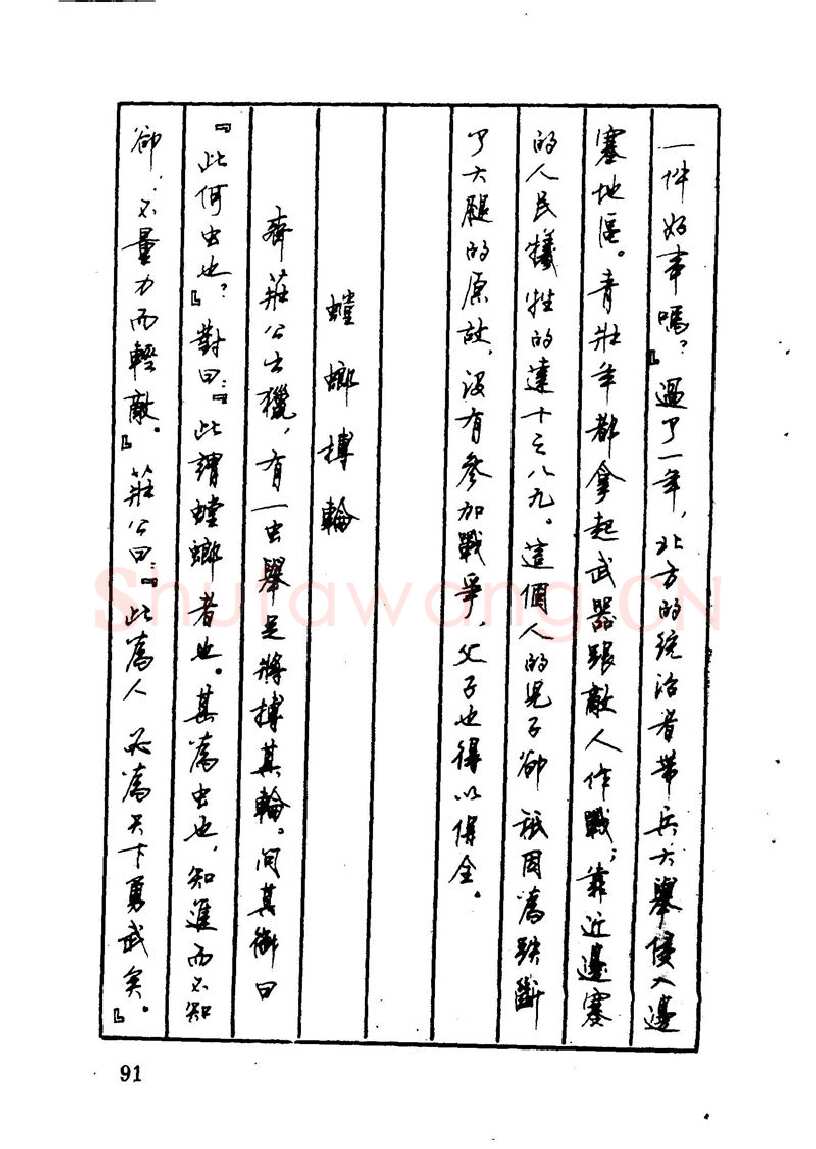 一件好事嗎？』過了一年，北方的統治者帶兵大舉侵入邊
塞地區。青壯年都拿起武器跟敵人作戰；靠近邊塞
的人民犧牲的達十之八九。這個人的兒子卻祇因為跌斷
了大腿的原故，沒有參加戰爭，父子也得以保全。
螳螂搏輪
齊莊公出獵，有一虫舉足將搏其輪。问其御曰
『此何虫也？』對曰：『此謂螳螂者也。其為虫也，知進而不知
卻，不量力而輕敵。』莊公曰：『此為人 必為天下勇武矣。』
Shufawang.CN
91